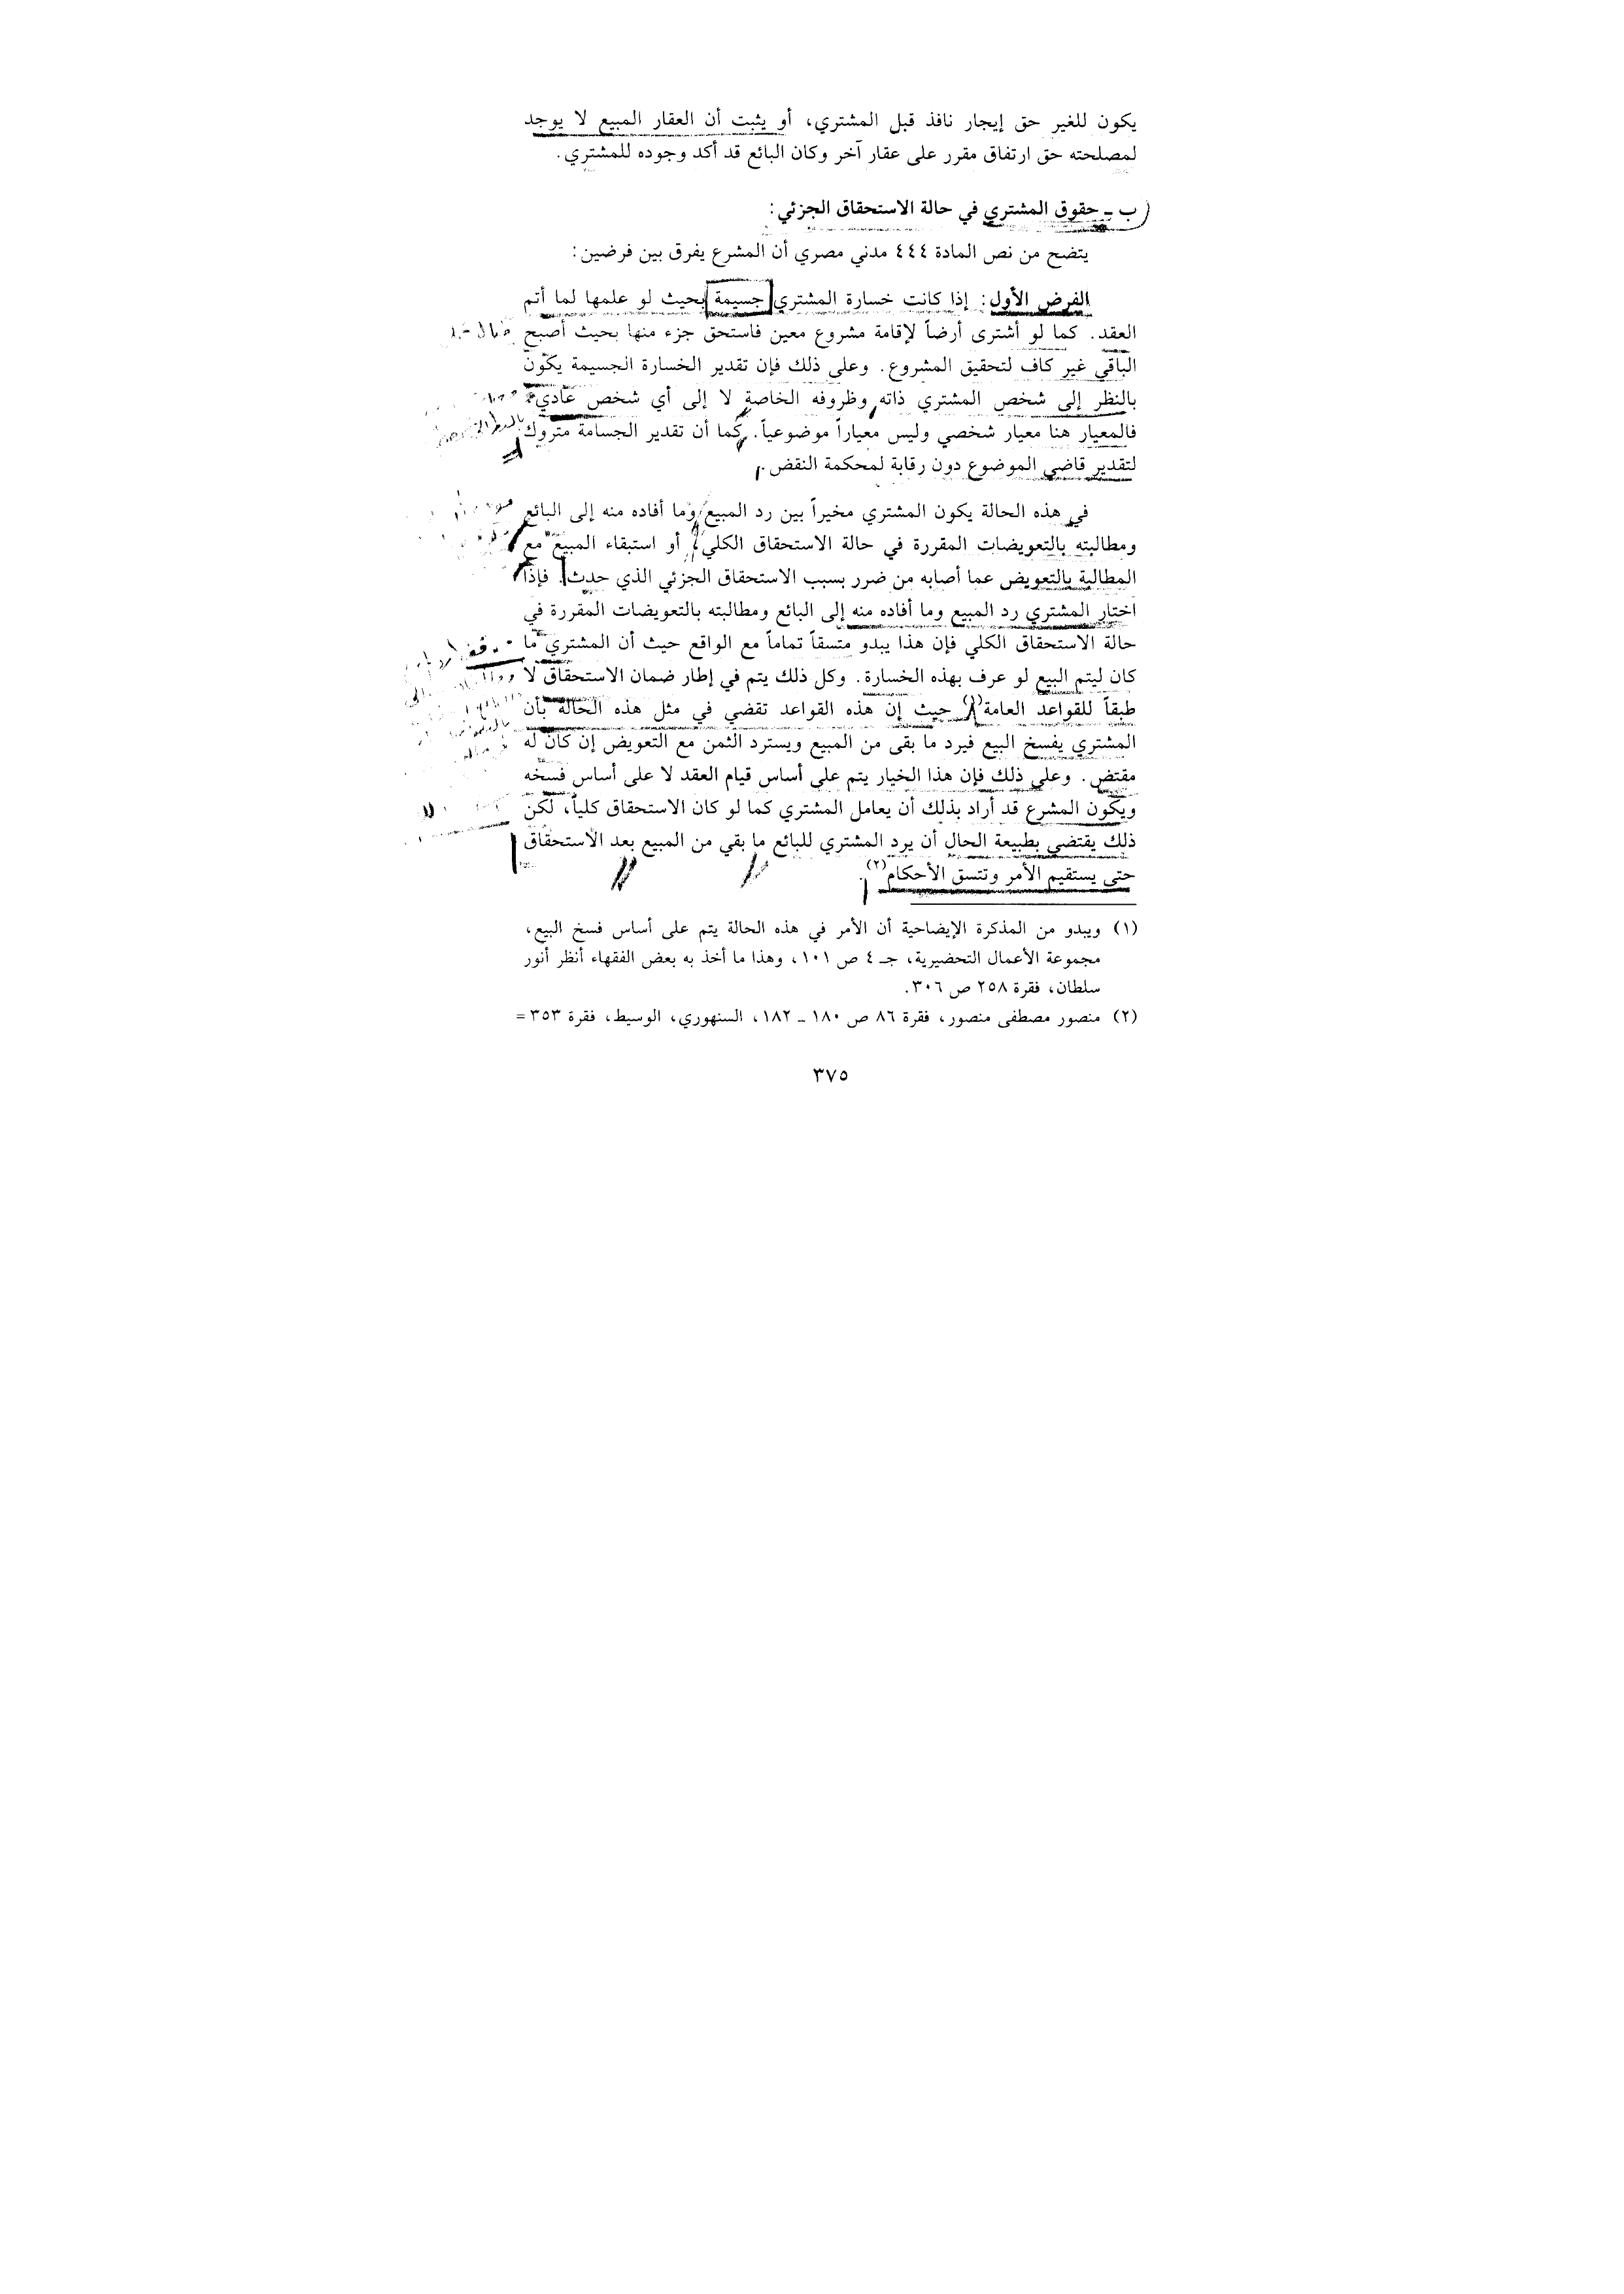 يكون للغير حق إيجار نافذ قبل المشتري، أو يثبت أن العقار المبيع لا يوجد
لمصلحته حق ارتفاق مقرر على عقار آخر وكان البائع قد أكد وجوده للمشتري.
ب ـ حقوق المشتري في حالة الاستحقاق الجزئي:
يتضح من نص المادة ٤٤٤ مدني مصري أن المشرع يفرق بين فرضين:
الفرض الأول: إذا كانت خسارة المشتري جسيمة بحيث لو علمها لما أتم
العقد. كما لو أشترى أرضاً لإقامة مشروع معين فاستحق جزء منها بحيث أصبح
الباقي غير كاف لتحقيق المشروع. وعلى ذلك فإن تقدير الخسارة الجسيمة يكون
بالنظر إلى شخص المشتري ذاته وظروفه الخاصة لا إلى أي شخص عادي
فالمعيار هنا معيار شخصي وليس معياراً موضوعياً. كما أن تقدير الجسامة متروك
لتقدير قاضي الموضوع دون رقابة لمحكمة النقض.
في هذه الحالة يكون المشتري مخيراً بين رد المبيع وما أفاده منه إلى البائع
ومطالبته بالتعويضات المقررة في حالة الاستحقاق الكلي، أو استبقاء المبيع مع
المطالبة بالتعويض عما أصابه من ضرر بسبب الاستحقاق الجزئي الذي حدث. فإذا
اختار المشتري رد المبيع وما أفاده منه إلى البائع ومطالبته بالتعويضات المقررة في
حالة الاستحقاق الكلي فإن هذا يبدو متسقاً تماماً مع الواقع حيث أن المشتري ما
كان ليتم البيع لو عرف بهذه الخسارة. وكل ذلك يتم في إطار ضمان الاستحقاق لا
طبقاً للقواعد العامة(١) حيث إن هذه القواعد تقضي في مثل هذه الحالة بأن
المشتري يفسخ البيع فيرد ما بقى من المبيع ويسترد الثمن مع التعويض إن كان له
مقتض. وعلى ذلك فإن هذا الخيار يتم على أساس قيام العقد لا على أساس فسخه
ويكون المشرع قد أراد بذلك أن يعامل المشتري كما لو كان الاستحقاق كلياً، لكن
ذلك يقتضي بطبيعة الحال أن يرد المشتري للبائع ما بقي من المبيع بعد الاستحقاق
حتى يستقيم الأمر وتتسق الأحكام(٢).
(١) ويبدو من المذكرة الإيضاحية أن الأمر في هذه الحالة يتم على أساس فسخ البيع،
مجموعة الأعمال التحضيرية، جـ ٤ ص ١٠١، وهذا ما أخذ به بعض الفقهاء أنظر أنور
سلطان، فقرة ٢٥٨ ص ٣٠٦.
(٢) منصور مصطفى منصور، فقرة ٨٦ ص ١٨٠ ـ ١٨٢، السنهوري، الوسيط، فقرة ٣٥٣ =
٣٧٥